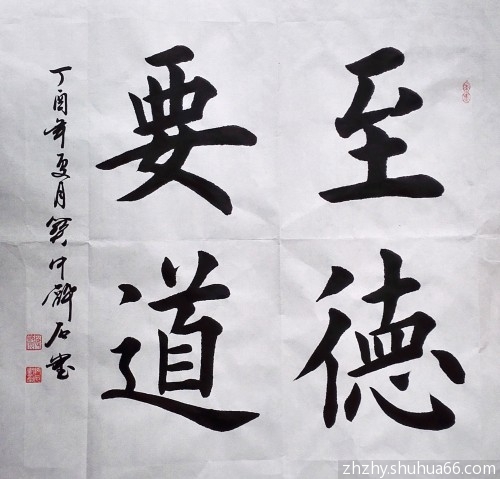 至德
要道
丁酉年夏月
zhzhy.shuhua66.com